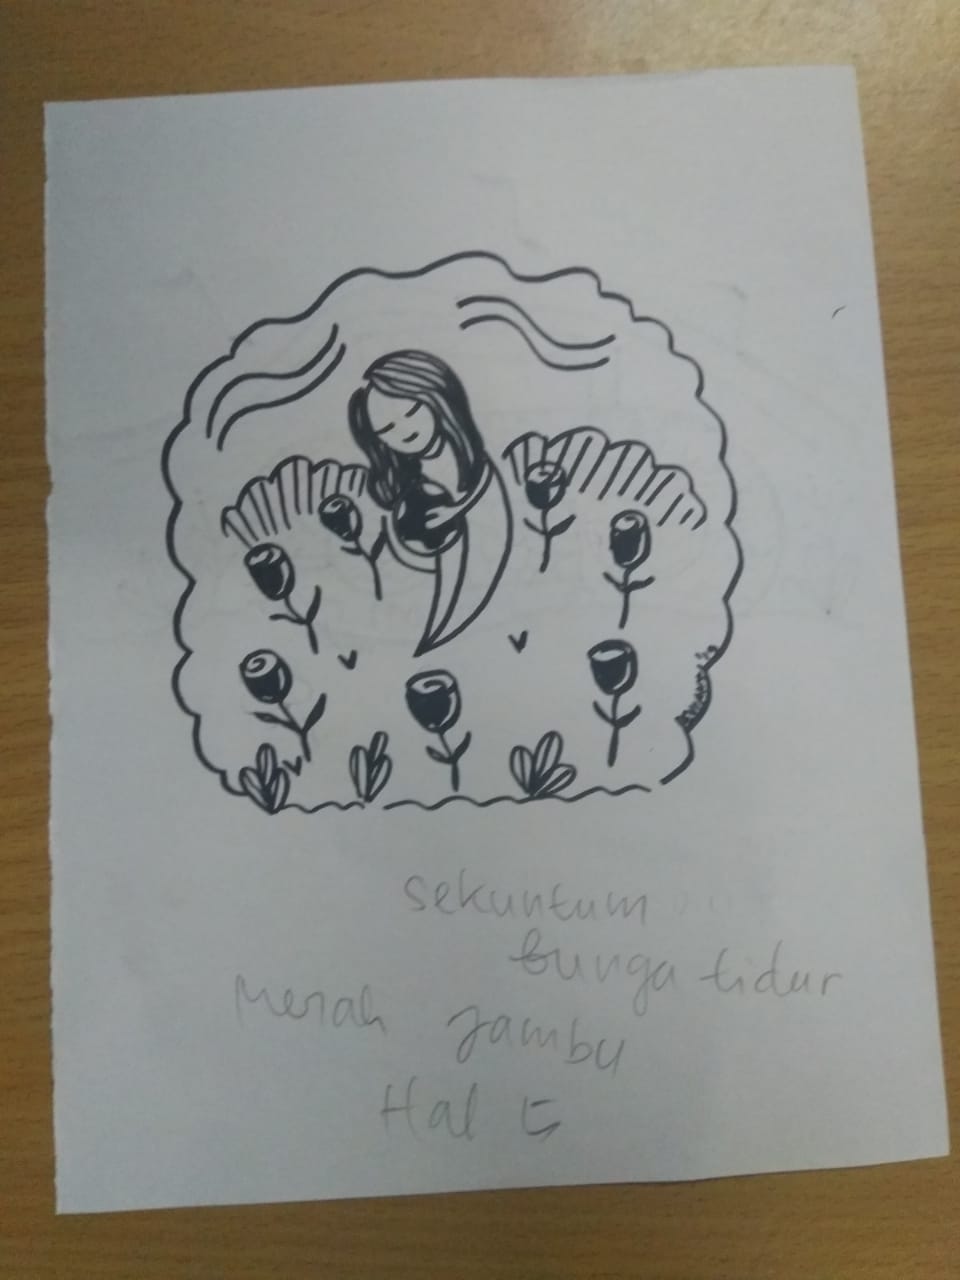 sekuntum
bunga tidur
Merah Jambu
Hal 5